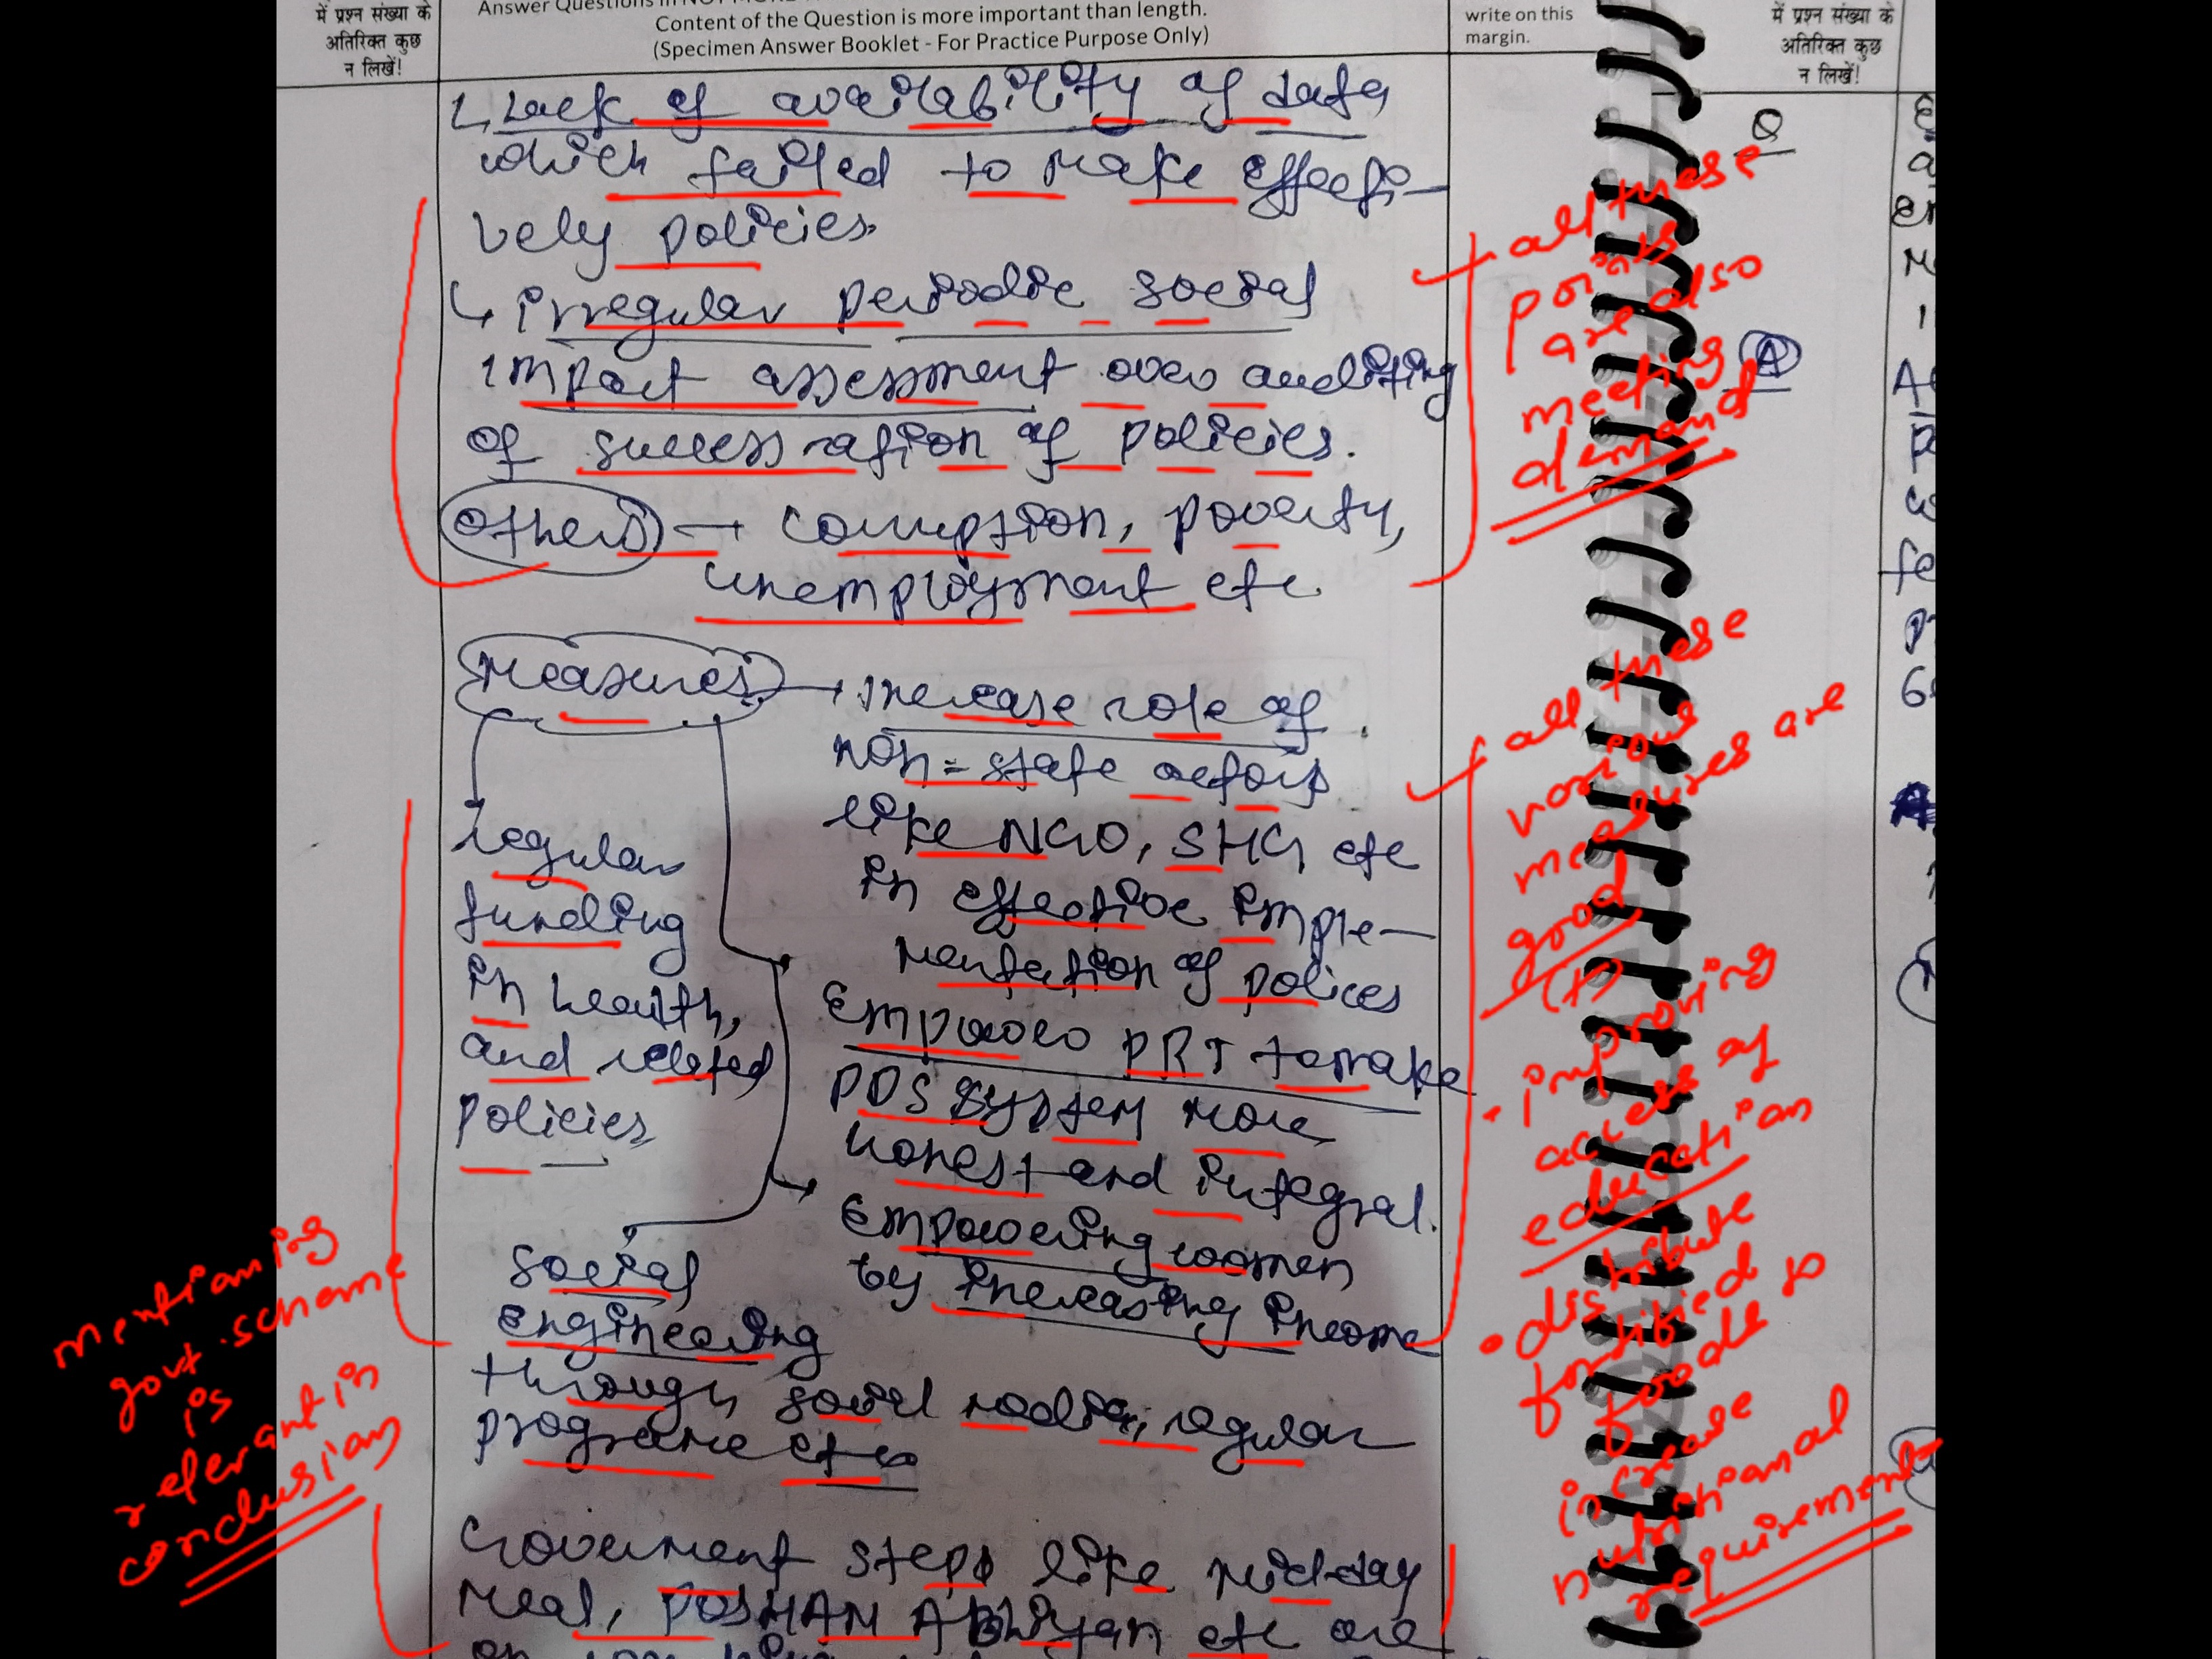 में प्रश्न संख्या के
अतिरिक्त कुछ
न लिखें!
Answer Questions in NOT MORE
Content of the Question is more important than length.
(Specimen Answer Booklet - For Practice Purpose Only)
write on this
margin.
में प्रश्न संख्या के
अतिरिक्त कुछ
न लिखें!
Lack of availability of data
which failed to make effecti-
vely policies.
irregular periodic social
impact assessment over auditing
of of policies.
others → corruption, poverty,
unemployment etc.
all these
points
are also
meeting
demand
Q
A
Measures → increase role of
non-state actors
like NGO, SHG, etc
in effective imple-
mentation of polices
Empower PRI to make
PDS system more
honest and integral.
Empowering women
by increasing income
regular
funding
in health,
and related
policies
social
engineering
through social media, regular
programe etc
all these
various
measures are
good
(+)
• improving
access of
education
• distribute
fortified
foods to
increase
nutritional
requirement
mentioning
govt. scheme
is
relevant in
conclusion
Goverment steps like mid-day
meal, POSHAN Abhiyan etc are